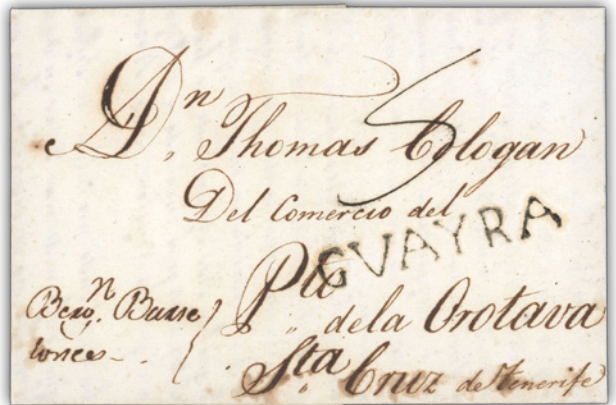 Dn. Thomas Cologan
5
Del Comercio del
GUAYRA
Pto
de la Orotava
Sta Cruz de Tenerife
Bergn.